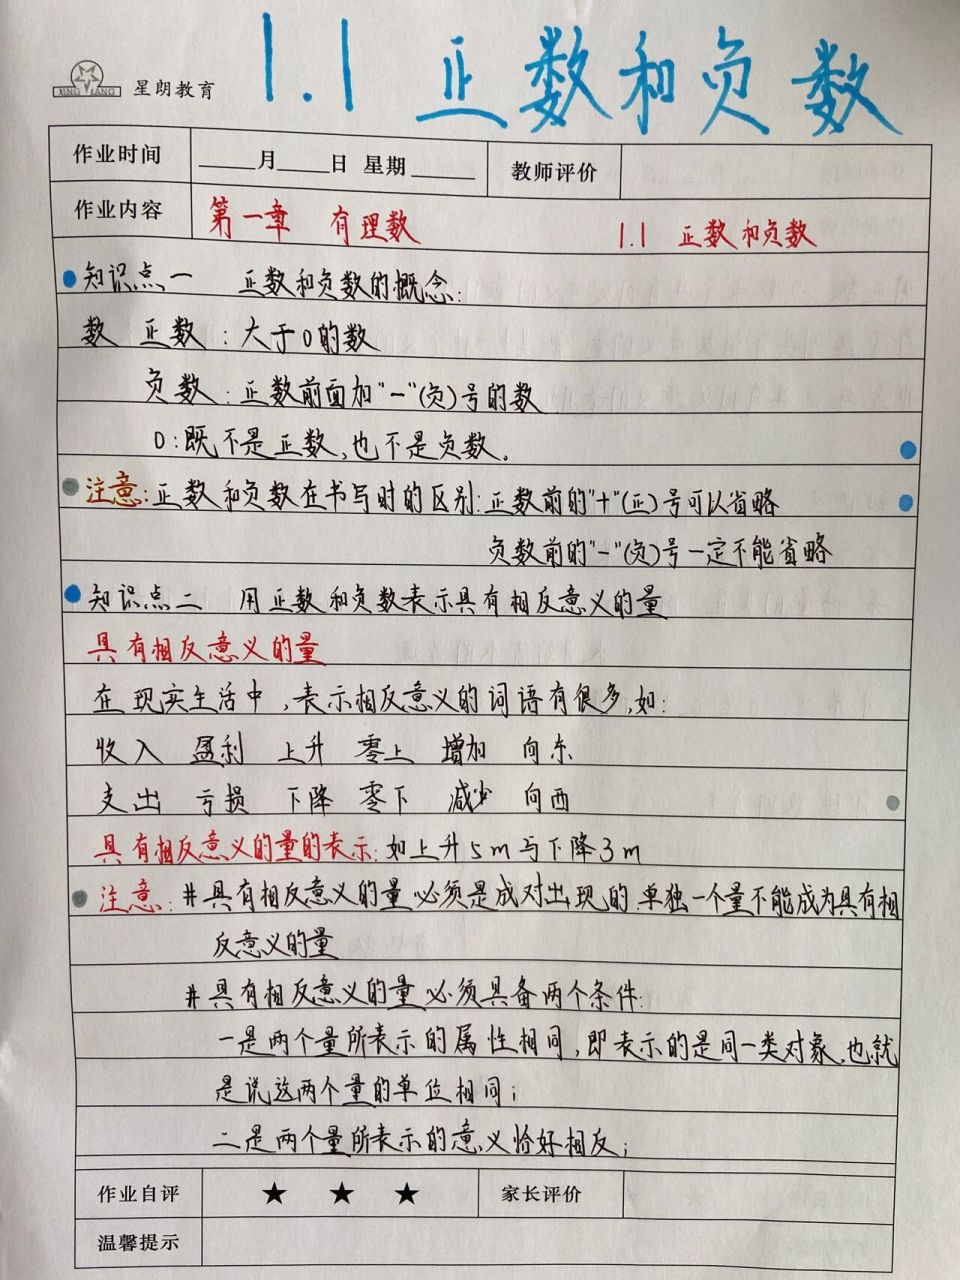 1.1 正数和负数
XING LANG 星朗教育
作业时间 ____月____日 星期____ 教师评价
作业内容 第一章 有理数 1.1 正数和负数
知识点一 正数和负数的概念:
数 正数:大于0的数
负数:正数前面加"-"(负)号的数
0:既不是正数,也不是负数。
注意:正数和负数在书写时的区别:正数前的"+"(正)号可以省略
负数前的"-"(负)号一定不能省略
知识点二 用正数和负数表示具有相反意义的量
具有相反意义的量
在现实生活中,表示相反意义的词语有很多,如:
收入 盈利 上升 零上 增加 向东
支出 亏损 下降 零下 减少 向西
具有相反意义的量的表示:如上升5m与下降3m
注意:#具有相反意义的量必须是成对出现的.单独一个量不能成为具有相
反意义的量
#具有相反意义的量必须具备两个条件:
一是两个量所表示的属性相同,即表示的是同一类对象,也就
是说这两个量的单位相同;
二是两个量所表示的意义恰好相反;
作业自评 ★ ★ ★ 家长评价
温馨提示